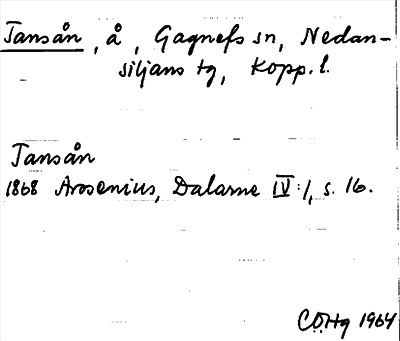 Tansån, å, Gagnefs sn, Nedan-
siljans tg, Kopp. l.
Tansån
1868 Arosenius, Dalarne IV:1, s. 16.
COHg 1964